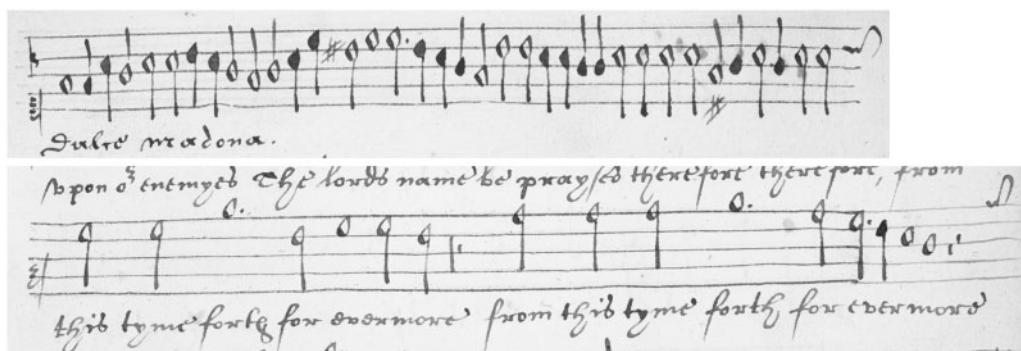 Dulce madona.
vpon oʳ enemyes The lords name be praysed therefore therefore, from
this tyme forth for evermore from this tyme forth, for evermore